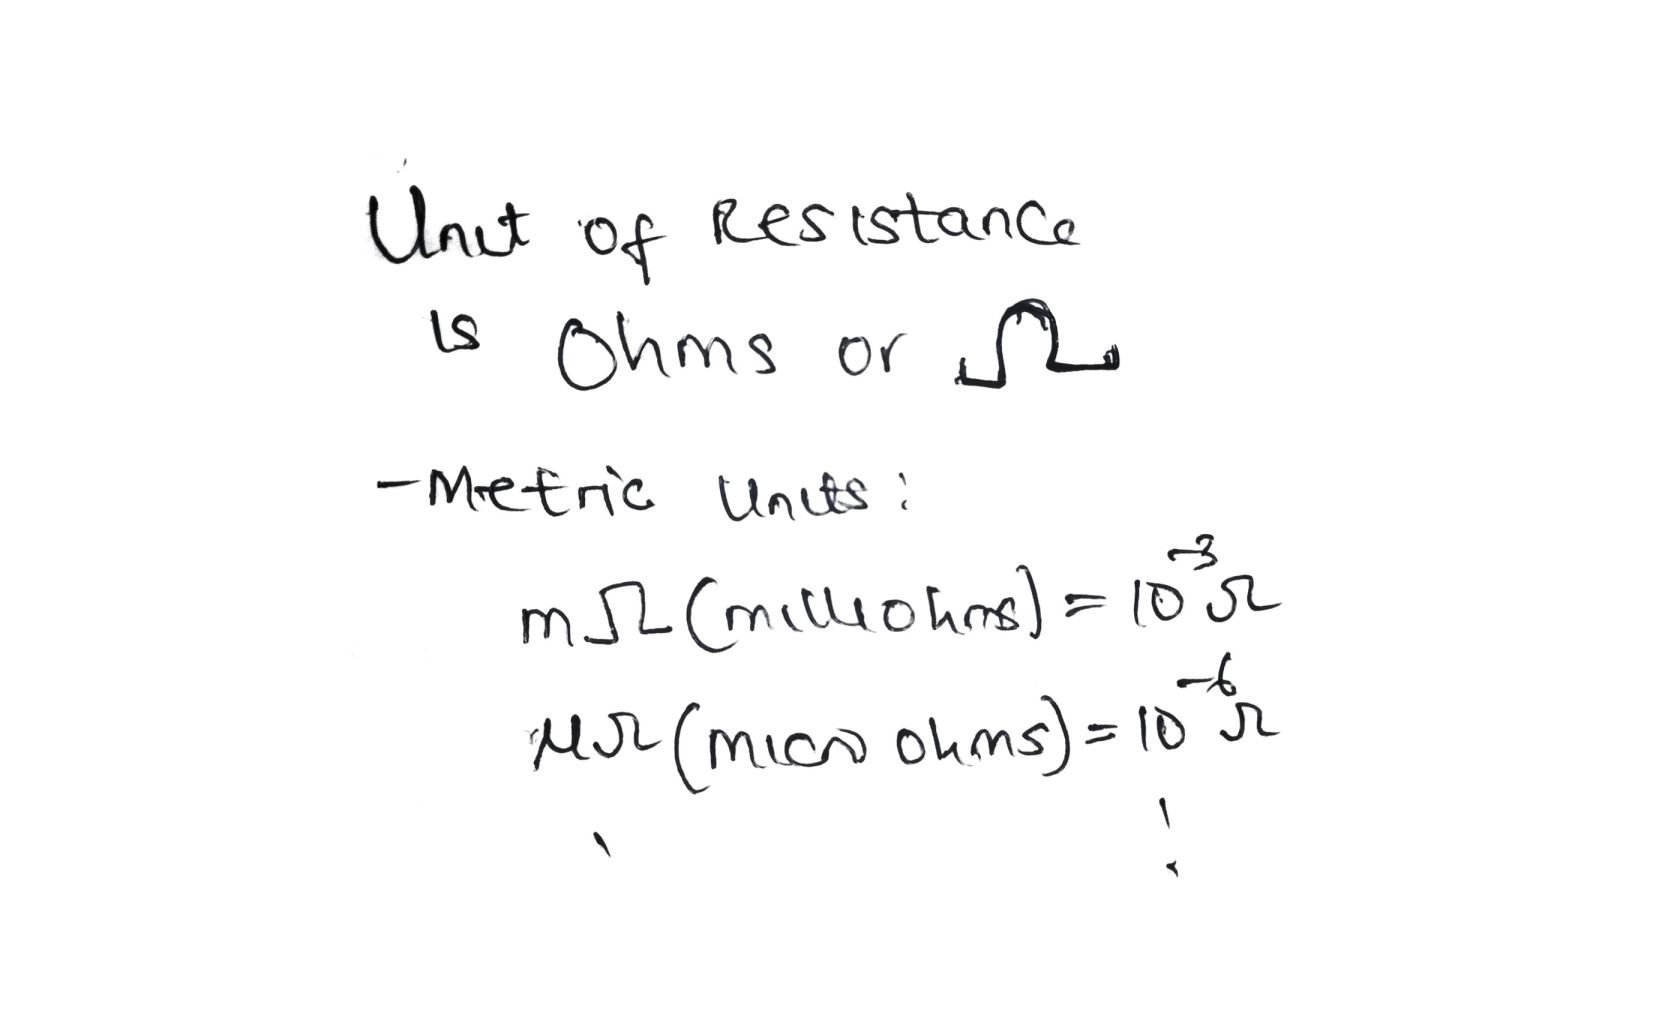 Unit of Resistance
is Ohms or Ω
- Metric Units:
mΩ (milliohms) = 10⁻³Ω
μΩ (micro ohms) = 10⁻⁶Ω